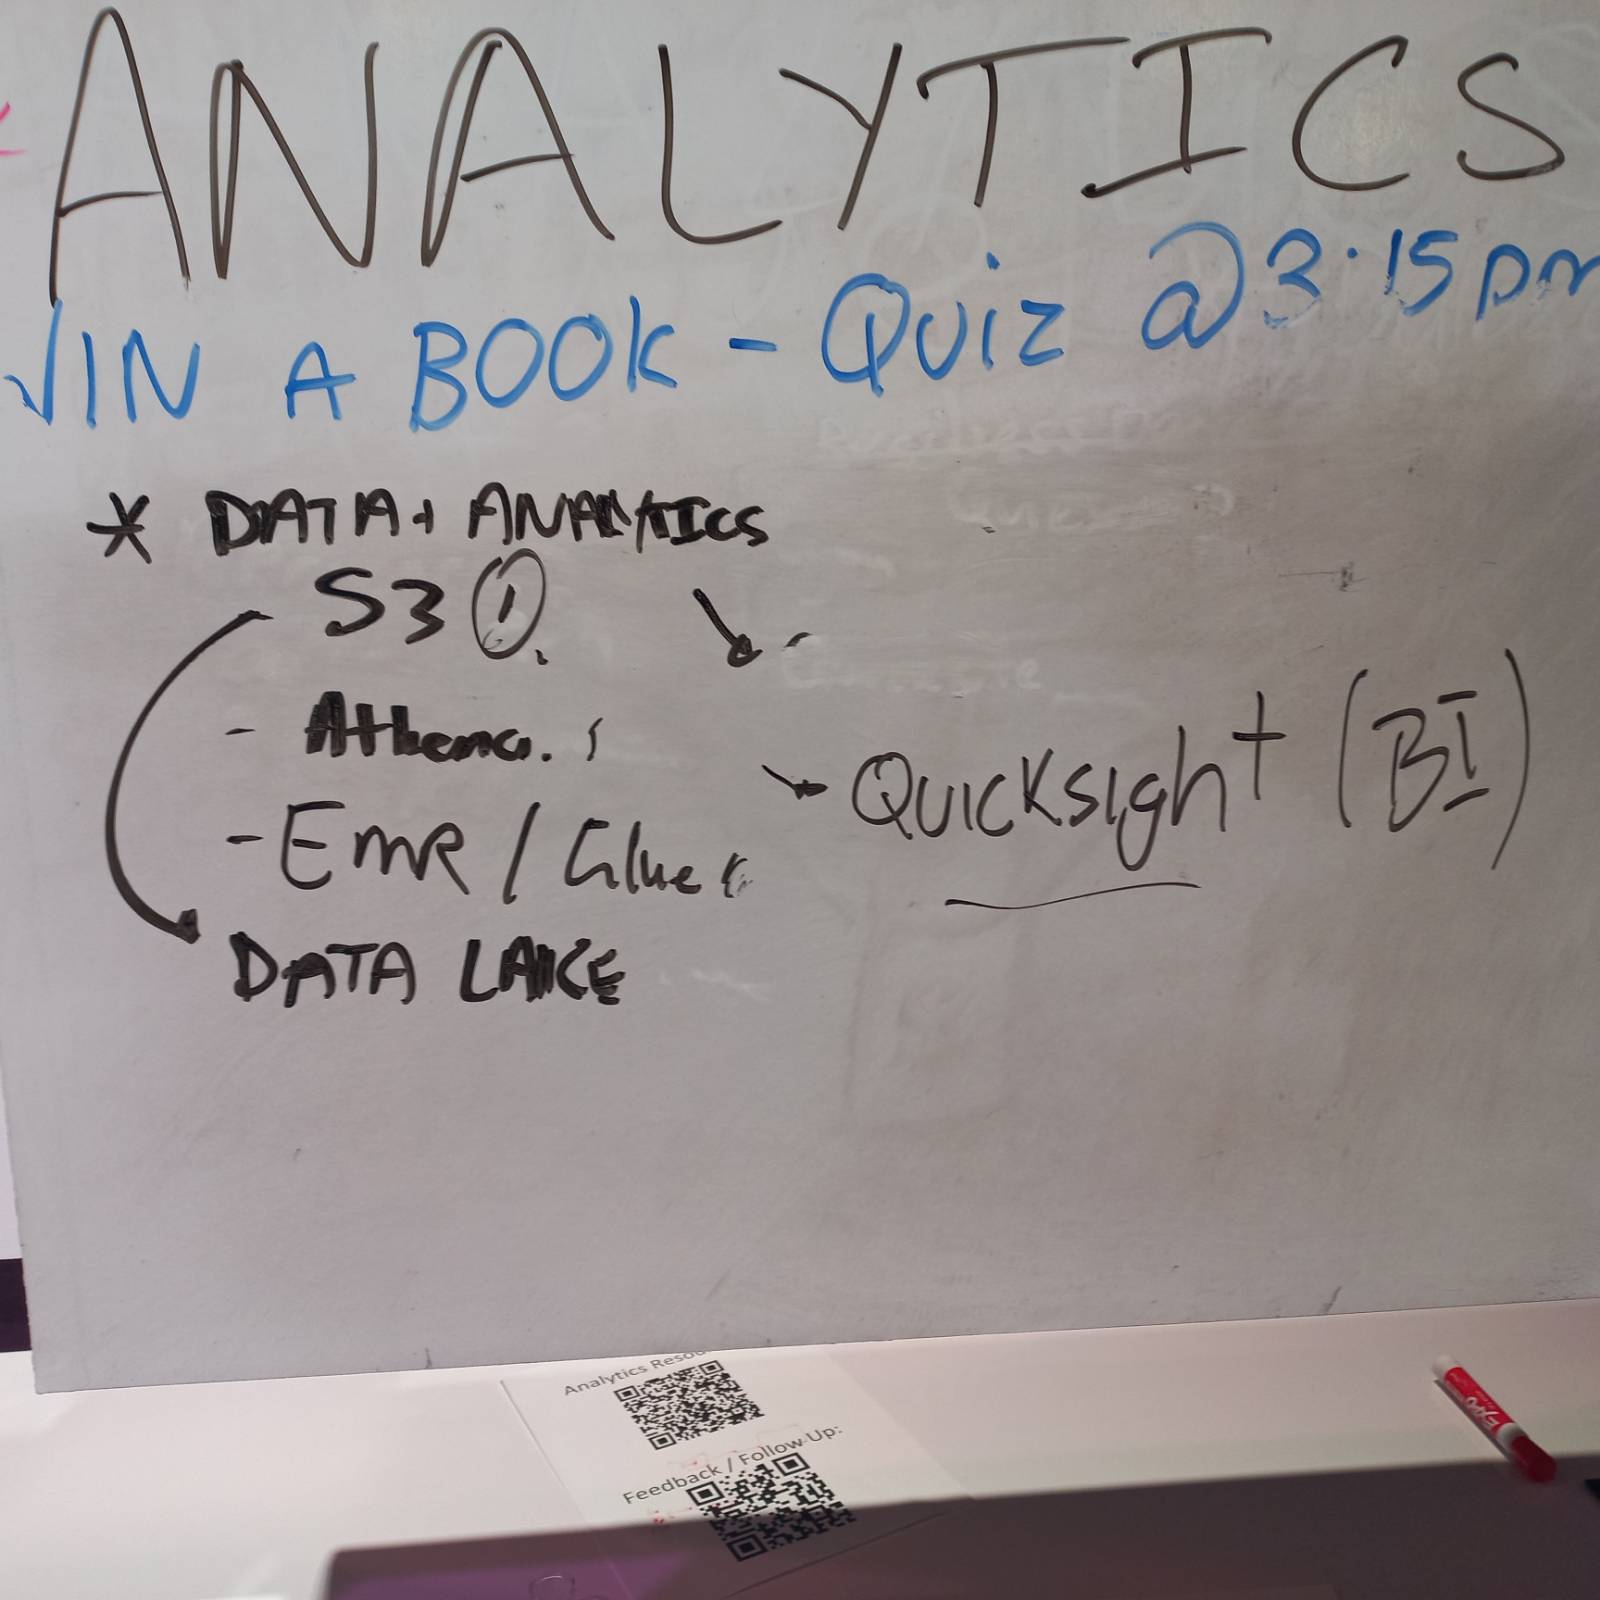 ANALYTICS
WIN A BOOK - Quiz @ 3.15 pm
* DATA + ANALYTICS
S3 ①
- Athena.
- EMR / Glue
DATA LAKE
Quicksight (BI)
Analytics Resou
Feedback / Follow-Up:
EXPO